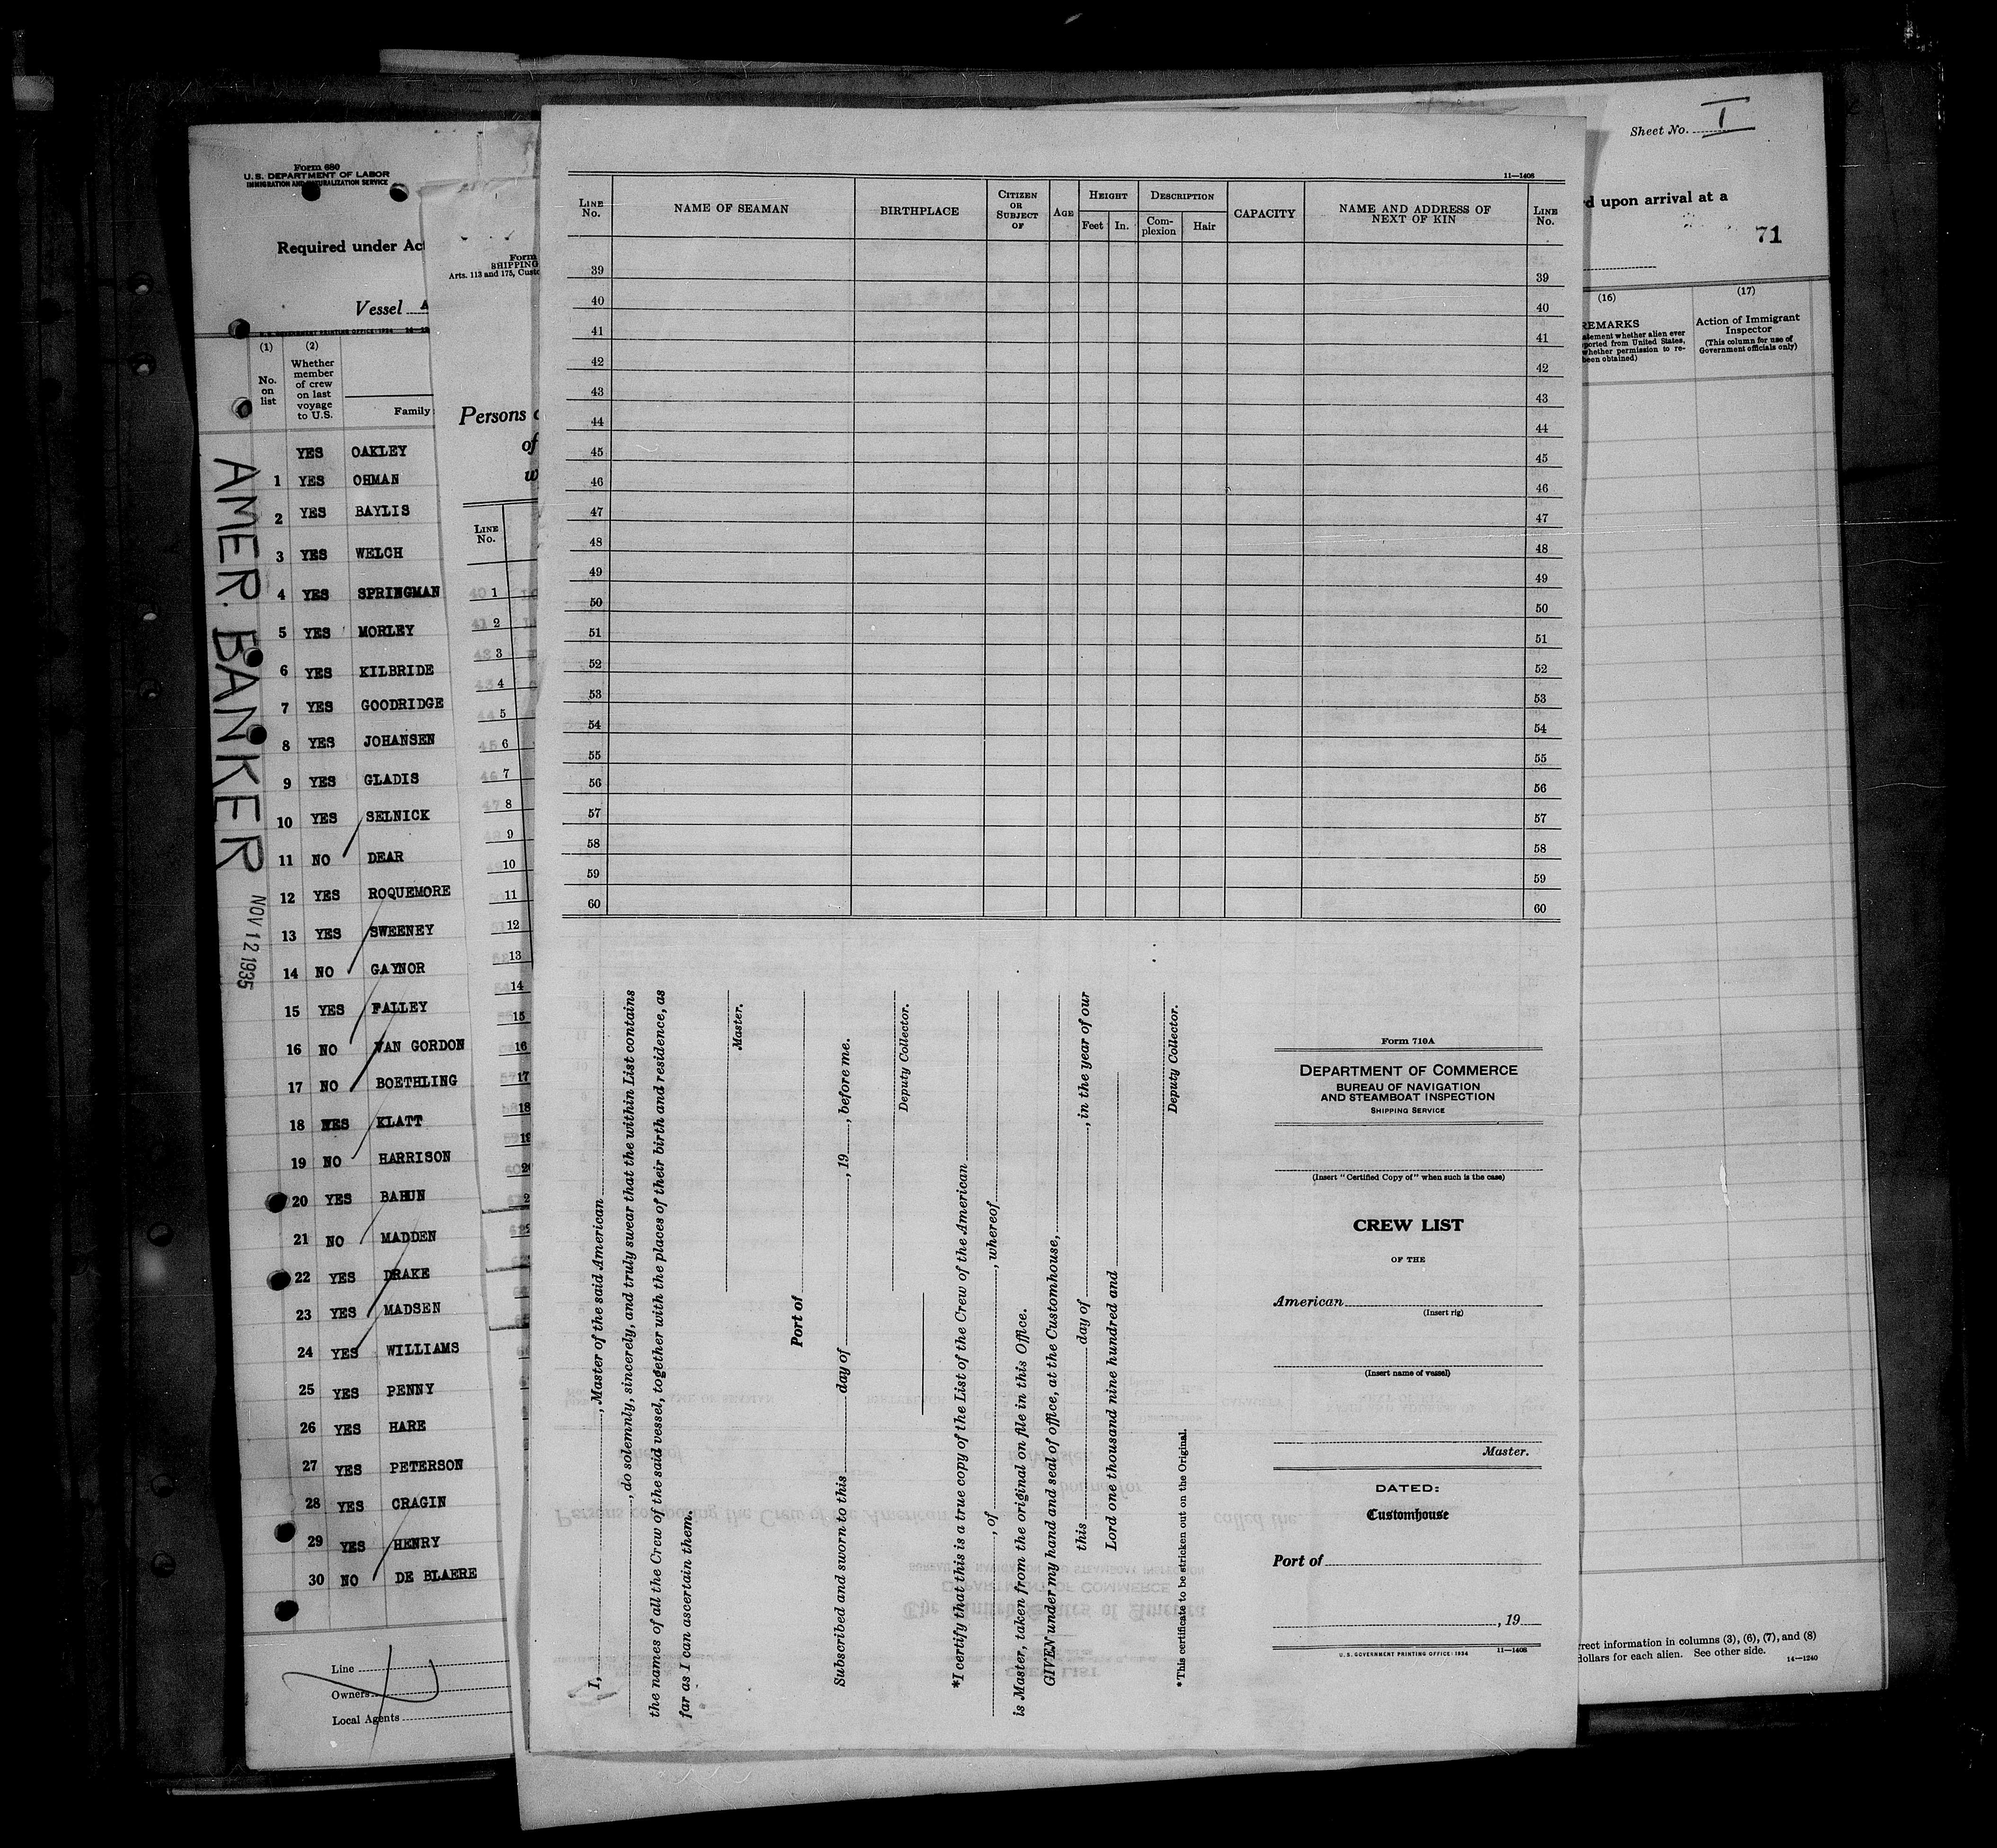 Form 680
U.S. DEPARTMENT OF LABOR
IMMIGRATION AND NATURALIZATION SERVICE
Required under Act
Vessel A
U.S. GOVERNMENT PRINTING OFFICE: 1934
(1) (2)
No. on list
Whether member of crew on last voyage to U.S.
Family
YES OAKLEY
1 YES OHMAN
2 YES BAYLIS
3 YES WELCH
4 YES SPRINGMAN
5 YES MORLEY
6 YES KILBRIDE
7 YES GOODRIDGE
8 YES JOHANSEN
9 YES GLADIS
10 YES SELNICK
11 NO DEAR
12 YES ROQUEMORE
13 YES SWEENEY
14 NO GAYNOR
15 YES FALLEY
16 NO VAN GORDON
17 NO BOETHLING
18 YES KLATT
19 NO HARRISON
20 YES BAHUN
21 NO MADDEN
22 YES DRAKE
23 YES MADSEN
24 YES WILLIAMS
25 YES PENNY
26 YES HARE
27 YES PETERSON
28 YES CRAGIN
29 YES HENRY
30 NO DE BLAERE
Line
Owners
Local Agents
AMER. BANKER
NOV 12 1935
Form
SHIPPING
Arts. 113 and 175, Custo
Persons c
of
w
LINE No.
1
2
3
4
5
6
7
8
9
10
11
12
13
14
15
16
17
18
19
11—1408
LINE No.
NAME OF SEAMAN
BIRTHPLACE
CITIZEN OR SUBJECT OF
AGE
HEIGHT
Feet In.
DESCRIPTION
Complexion Hair
CAPACITY
NAME AND ADDRESS OF NEXT OF KIN
LINE No.
39 39
40 40
41 41
42 42
43 43
44 44
45 45
46 46
47 47
48 48
49 49
50 50
51 51
52 52
53 53
54 54
55 55
56 56
57 57
58 58
59 59
60 60
I, , Master of the said American
, do solemnly, sincerely, and truly swear that the within List contains
the names of all the Crew of the said vessel, together with the places of their birth and residence, as
far as I can ascertain them.
Master.
Port of
Subscribed and sworn to this day of , 19 , before me.
Deputy Collector.
*I certify that this is a true copy of the List of the Crew of the American
, of , whereof
is Master, taken from the original on file in this Office.
GIVEN under my hand and seal of office, at the Customhouse,
this day of , in the year of our
Lord one thousand nine hundred and
Deputy Collector.
*This certificate to be stricken out on the Original.
Form 710A
DEPARTMENT OF COMMERCE
BUREAU OF NAVIGATION
AND STEAMBOAT INSPECTION
SHIPPING SERVICE
(Insert "Certified Copy of" when such is the case)
CREW LIST
OF THE
American
(Insert rig)
(Insert name of vessel)
Master.
DATED:
Customhouse
Port of
, 19
U.S. GOVERNMENT PRINTING OFFICE: 1934 11—1408
Sheet No. I
d upon arrival at a
71
(16) (17)
REMARKS
atement whether alien ever
ported from United States,
whether permission to re-
been obtained)
Action of Immigrant
Inspector
(This column for use of
Government officials only)
rrect information in columns (3), (6), (7), and (8)
dollars for each alien. See other side.
14—1240